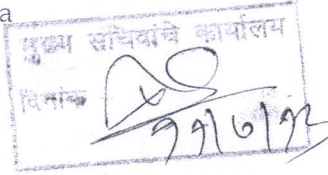 a
मुख्य सचिवांचे कार्यालय
दिनांक
११/७/१२